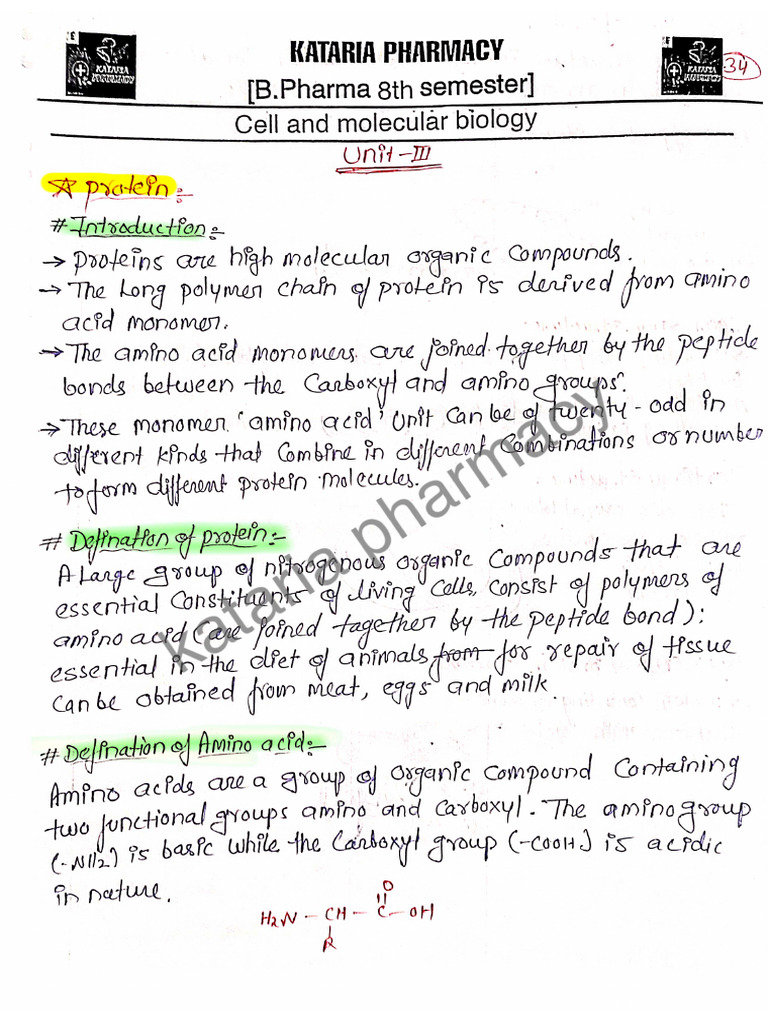 KATARIA PHARMACY
34
[B.Pharma 8th semester]
Cell and molecular biology
Unit-III
☆ Protein:-
# Introduction:-
→ Proteins are high molecular organic compounds.
→ The Long polymer chain of protein is derived from amino
acid monomer.
→ The amino acid monomers are joined together by the peptide
bonds between the Carboxyl and amino groups.
→ These monomer 'amino acid' Unit can be of twenty-odd in
different kinds that combine in different combinations or number
to form different protein molecules.
# Defination of protein:-
A Large group of nitrogenous organic compounds that are
essential constituents of living cells, consist of polymers of
amino acid are joined together by the peptide bond):
essential in the diet of animals from for repair of tissue
can be obtained from meat, eggs and milk
# Defination of Amino acid:-
Amino acids are a group of organic compound containing
two functional groups amino and carboxyl. The amino group
(-NH2) is basic while the Carboxyl group (-COOH) is acidic
in nature.
O
H2N - CH - C - OH
R
kataria pharmacy